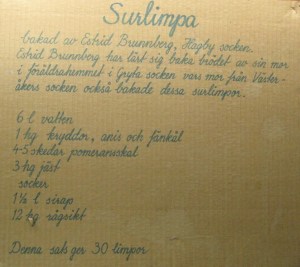 Surlimpa
bakad av Estrid Brunnberg, Hagby socken.
Estrid Brunnberg har lärt sig baka brödet av sin mor
i föräldrahemmet i Gryta socken vars mor från Väster-
åkers socken också bakade dessa surlimpor.
6 l vatten
1 hg kryddor, anis och fänkål
4-5 skedar pomeransskal
3 hg jäst
socker
1½ l sirap
12 kg rågsikt
Denna sats ger 30 limpor